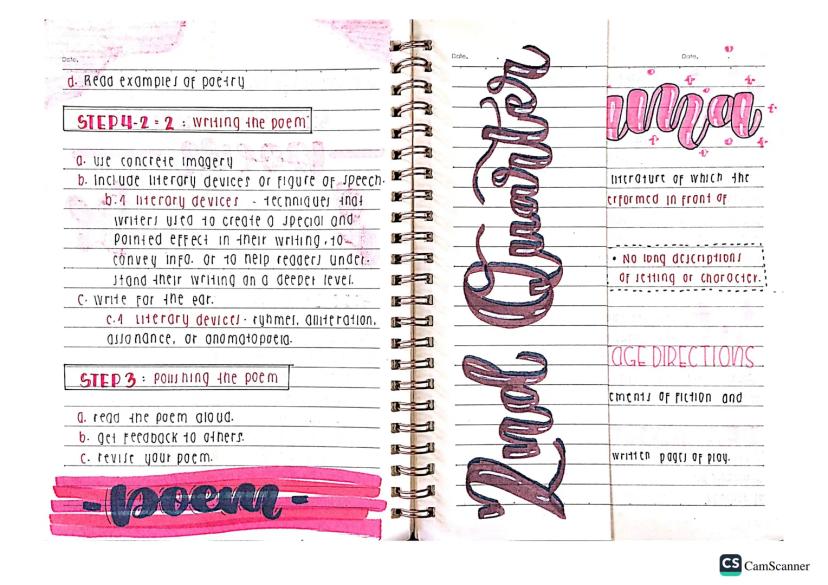 Date.
d. Read examples of poetry
STEP 4-2 = 2 : writing the poem
a. use concrete imagery
b. Include literary devices or figure of speech.
b.1 literary devices - techniques that
writers used to create a special and
pointed effect in their writing, to
convey info. or to help readers under-
stand their writing on a deeper level.
c. write for the ear.
c.1 literary devices - ryhmes, alliteration,
assonance, or onomatopoeia.
STEP 3 : Polishing the poem
a. read the poem aloud.
b. get feedback to others.
c. revise your poem.
- poem -
Date.
2nd Quarter
Date.
ama
literature of which the
erformed in front of
• No long descriptions
of setting or character.
AGE DIRECTIONS
ements of fiction and
written pages of play.
CS CamScanner